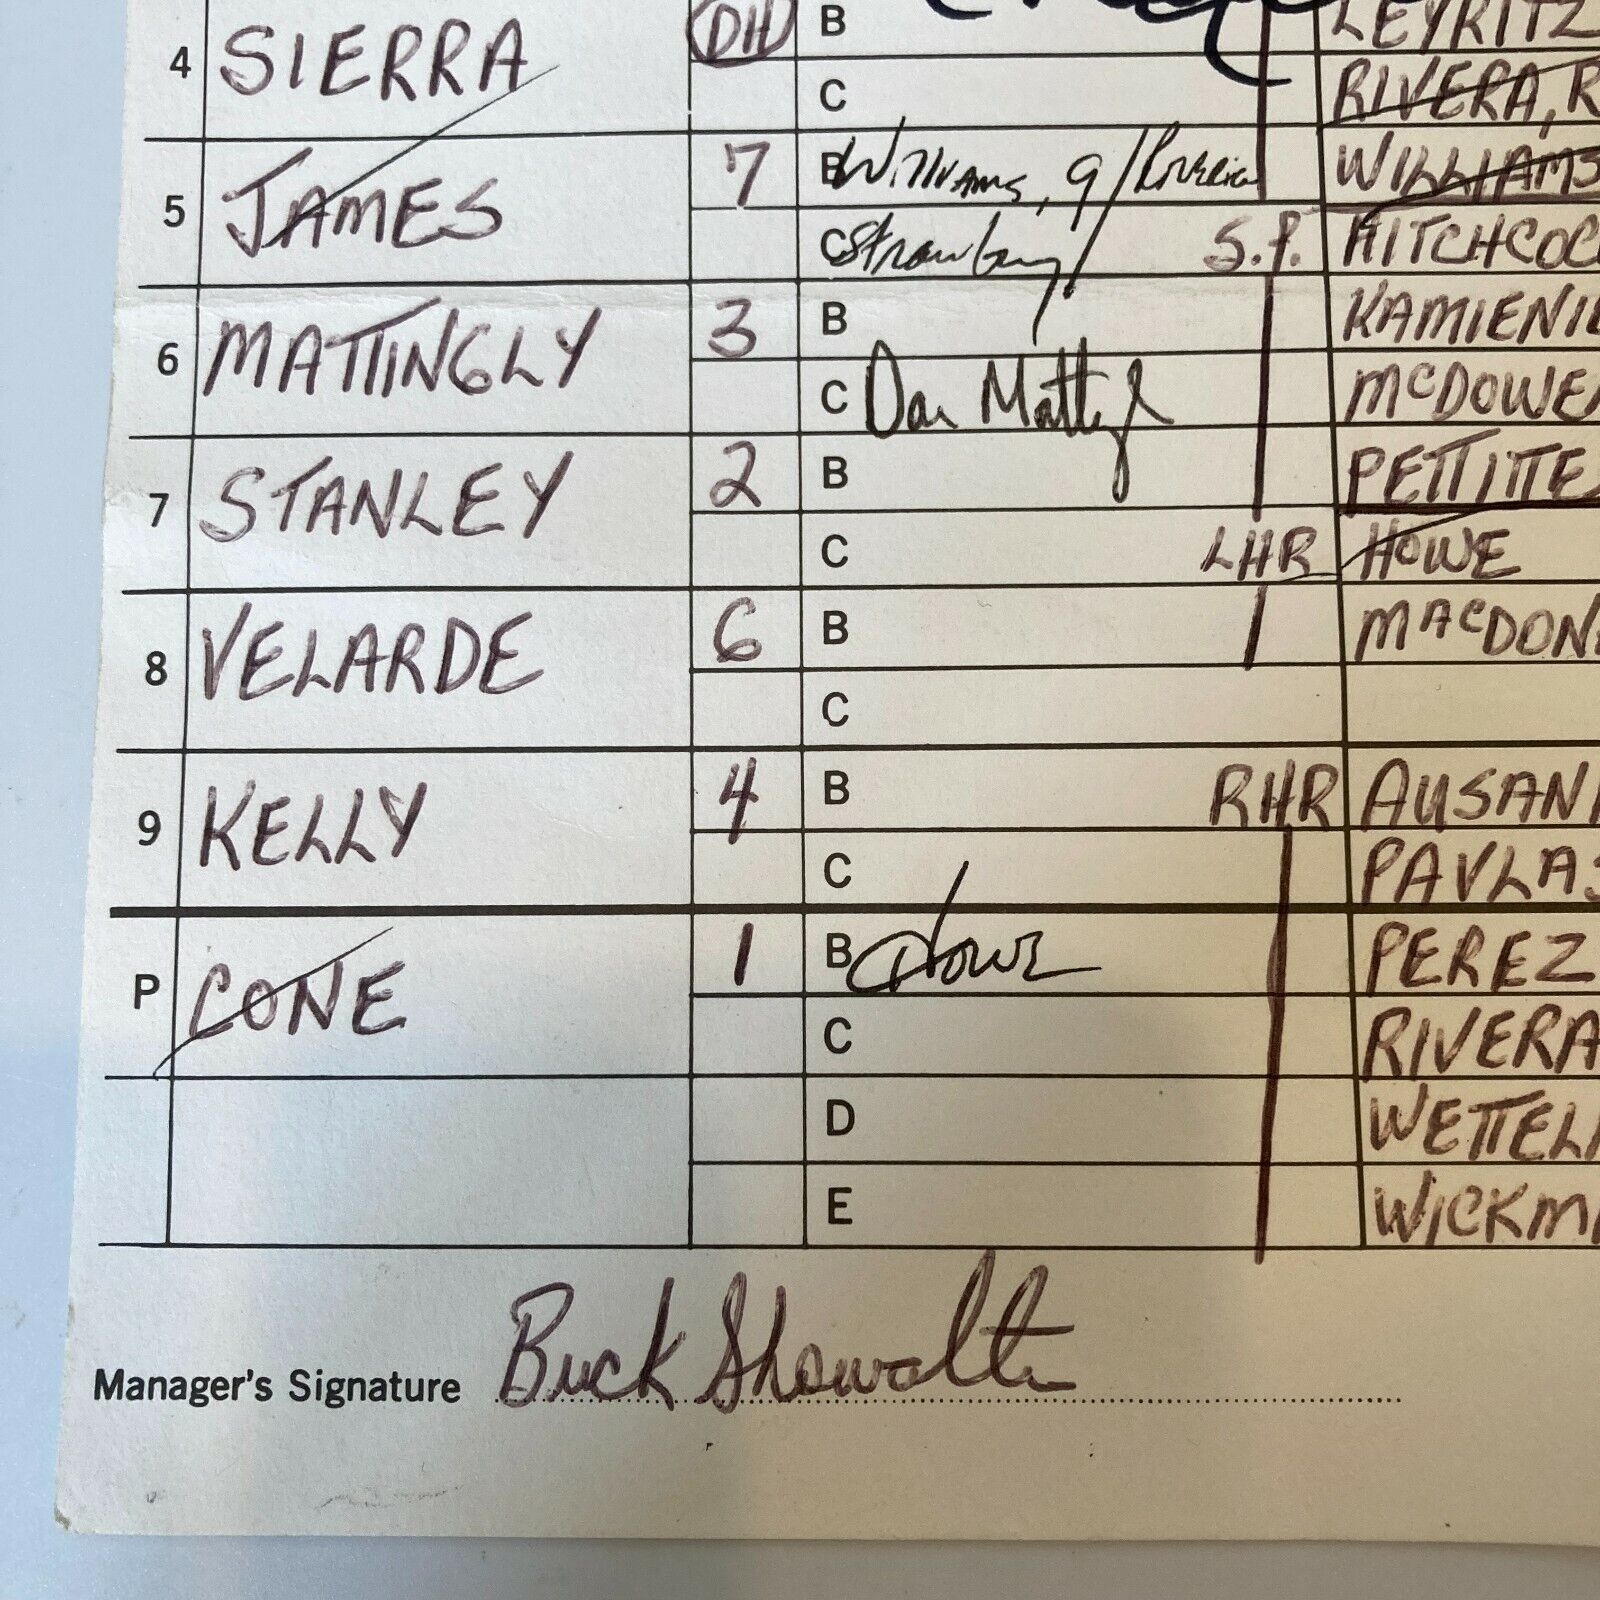 4 SIERRA DH B LEYRITZ
C RIVERA, R
5 JAMES 7 B Williams, 9 / Riviera WILLIAMS
C Strawberry S.P. HITCHCOC
6 MATTINGLY 3 B KAMIENI
C Don Mattingly McDOWE
7 STANLEY 2 B PETTITTE
C LHR HOWE
8 VELARDE 6 B MACDON
C
9 KELLY 4 B RHR AUSAN
C PAVLAS
P CONE 1 B Howe PEREZ
C RIVERA
D WETTEL
E WICKM
Manager's Signature Buck Showalter